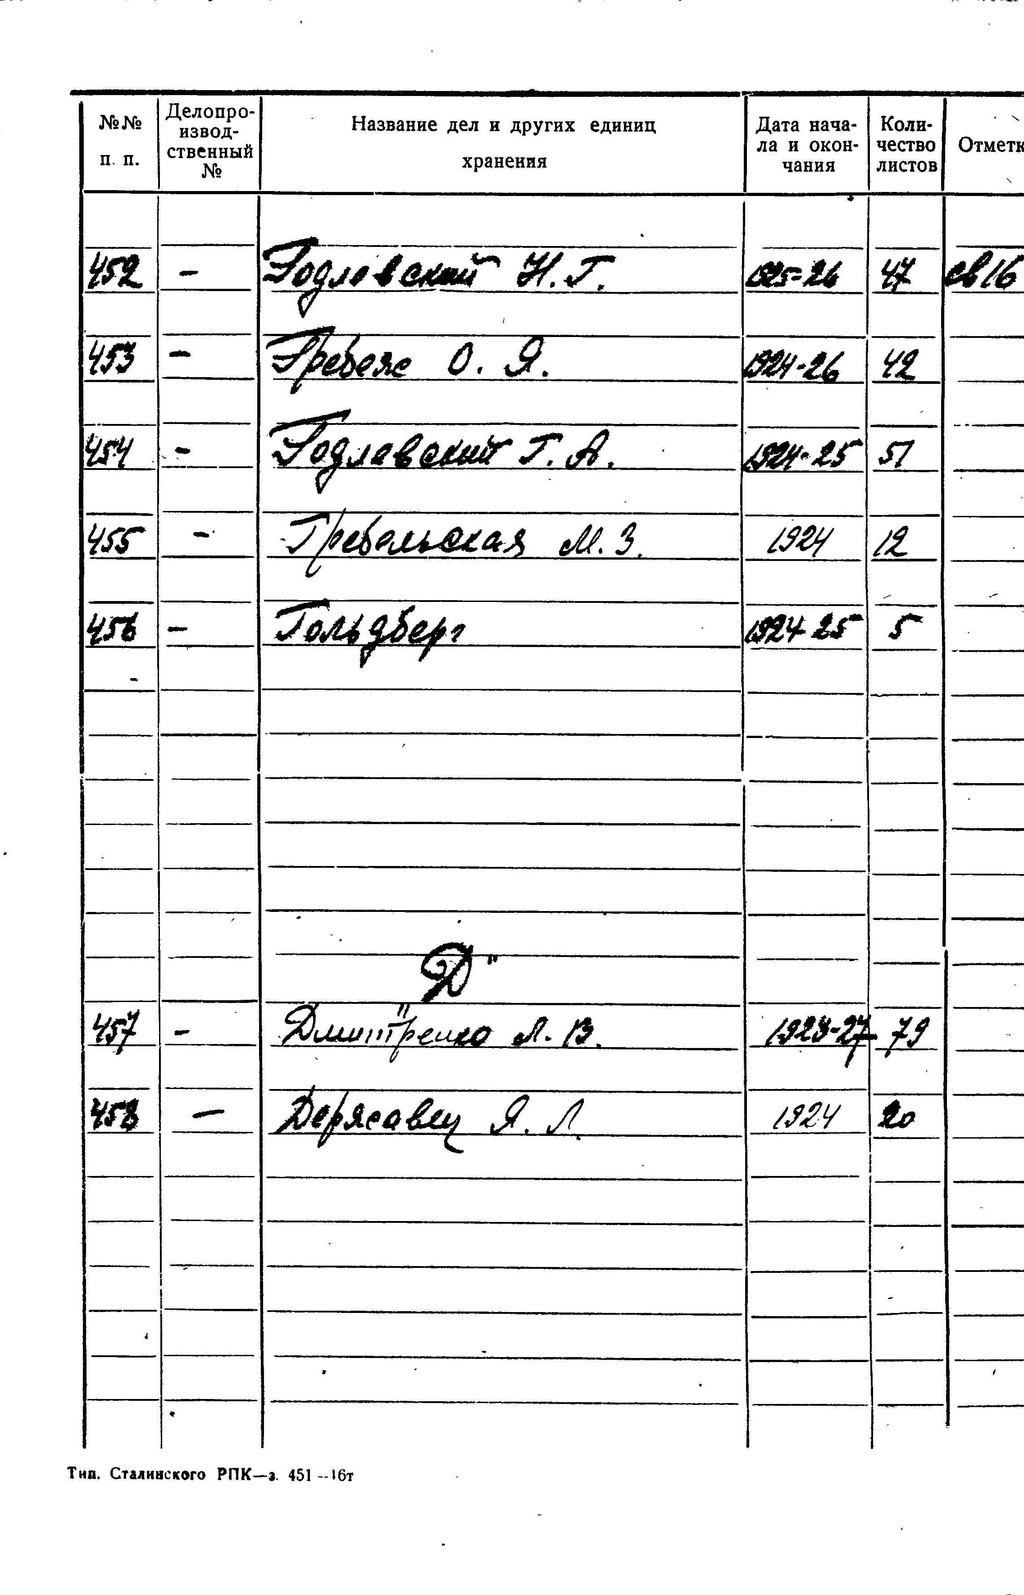 №№ п. п. Делопроизводственный № Название дел и других единиц хранения Дата начала и окончания Количество листов Отметк
452 - Годлевский Н. Г. 1925-26 47 св 16
453 - О. Я. 1924-26 42
454 - Годлавский Г. А. 1924-25 51
455 - Гребельская М. З. 1924 12
456 - Гольдберг 1924-25 5
"Д"
457 - Дмитренко Л. В. 79
458 - Державец Я. Л. 1924 20
Тип. Сталинского РПК—з. 451—16т